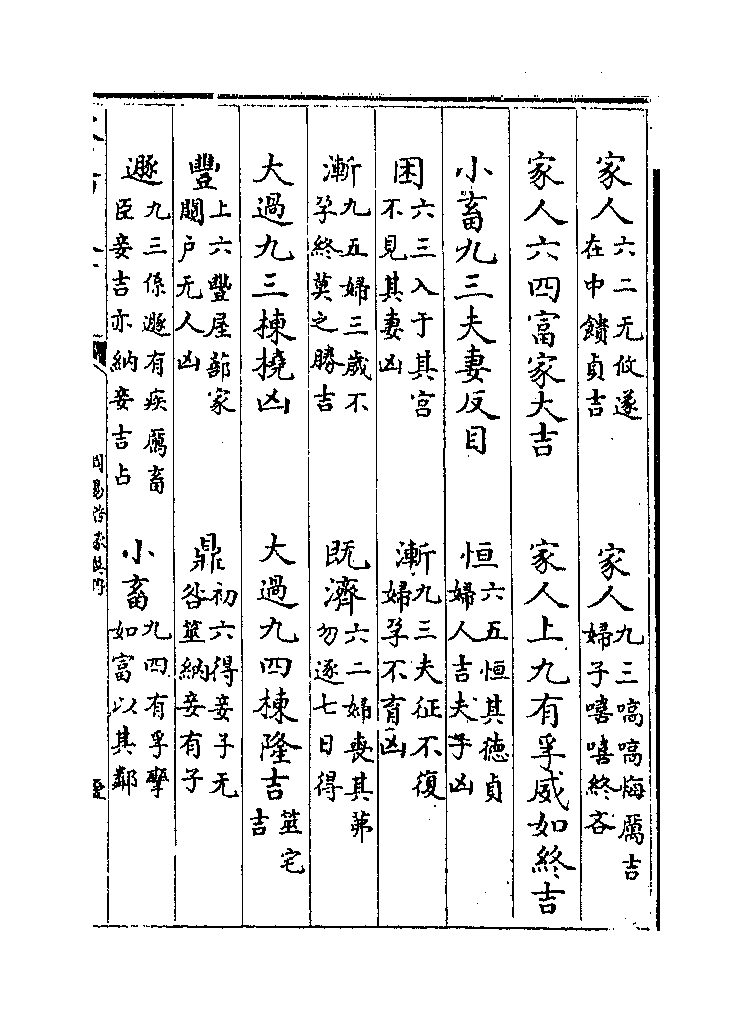 家人六二无攸遂
在中饋貞吉
家人九三嗃嗃悔厲吉
婦子嘻嘻終吝
家人六四富家大吉
家人上九有孚威如終吉
小畜九三夫妻反目
恒六五恒其德貞
婦人吉夫子凶
困六三入于其宫
不見其妻凶
漸九三夫征不復
婦孕不育凶
漸九五婦三歲不
孕終莫之勝吉
既濟六二婦喪其茀
勿逐七日得
大過九三棟撓凶
大過九四棟隆吉筮宅
吉
豐上六豐屋蔀家
闚户无人凶
鼎初六得妾子无
咎筮納妾有子
遯九三係遯有疾厲畜
臣妾吉亦納妾吉占
小畜九四有孚攣
如富以其鄰